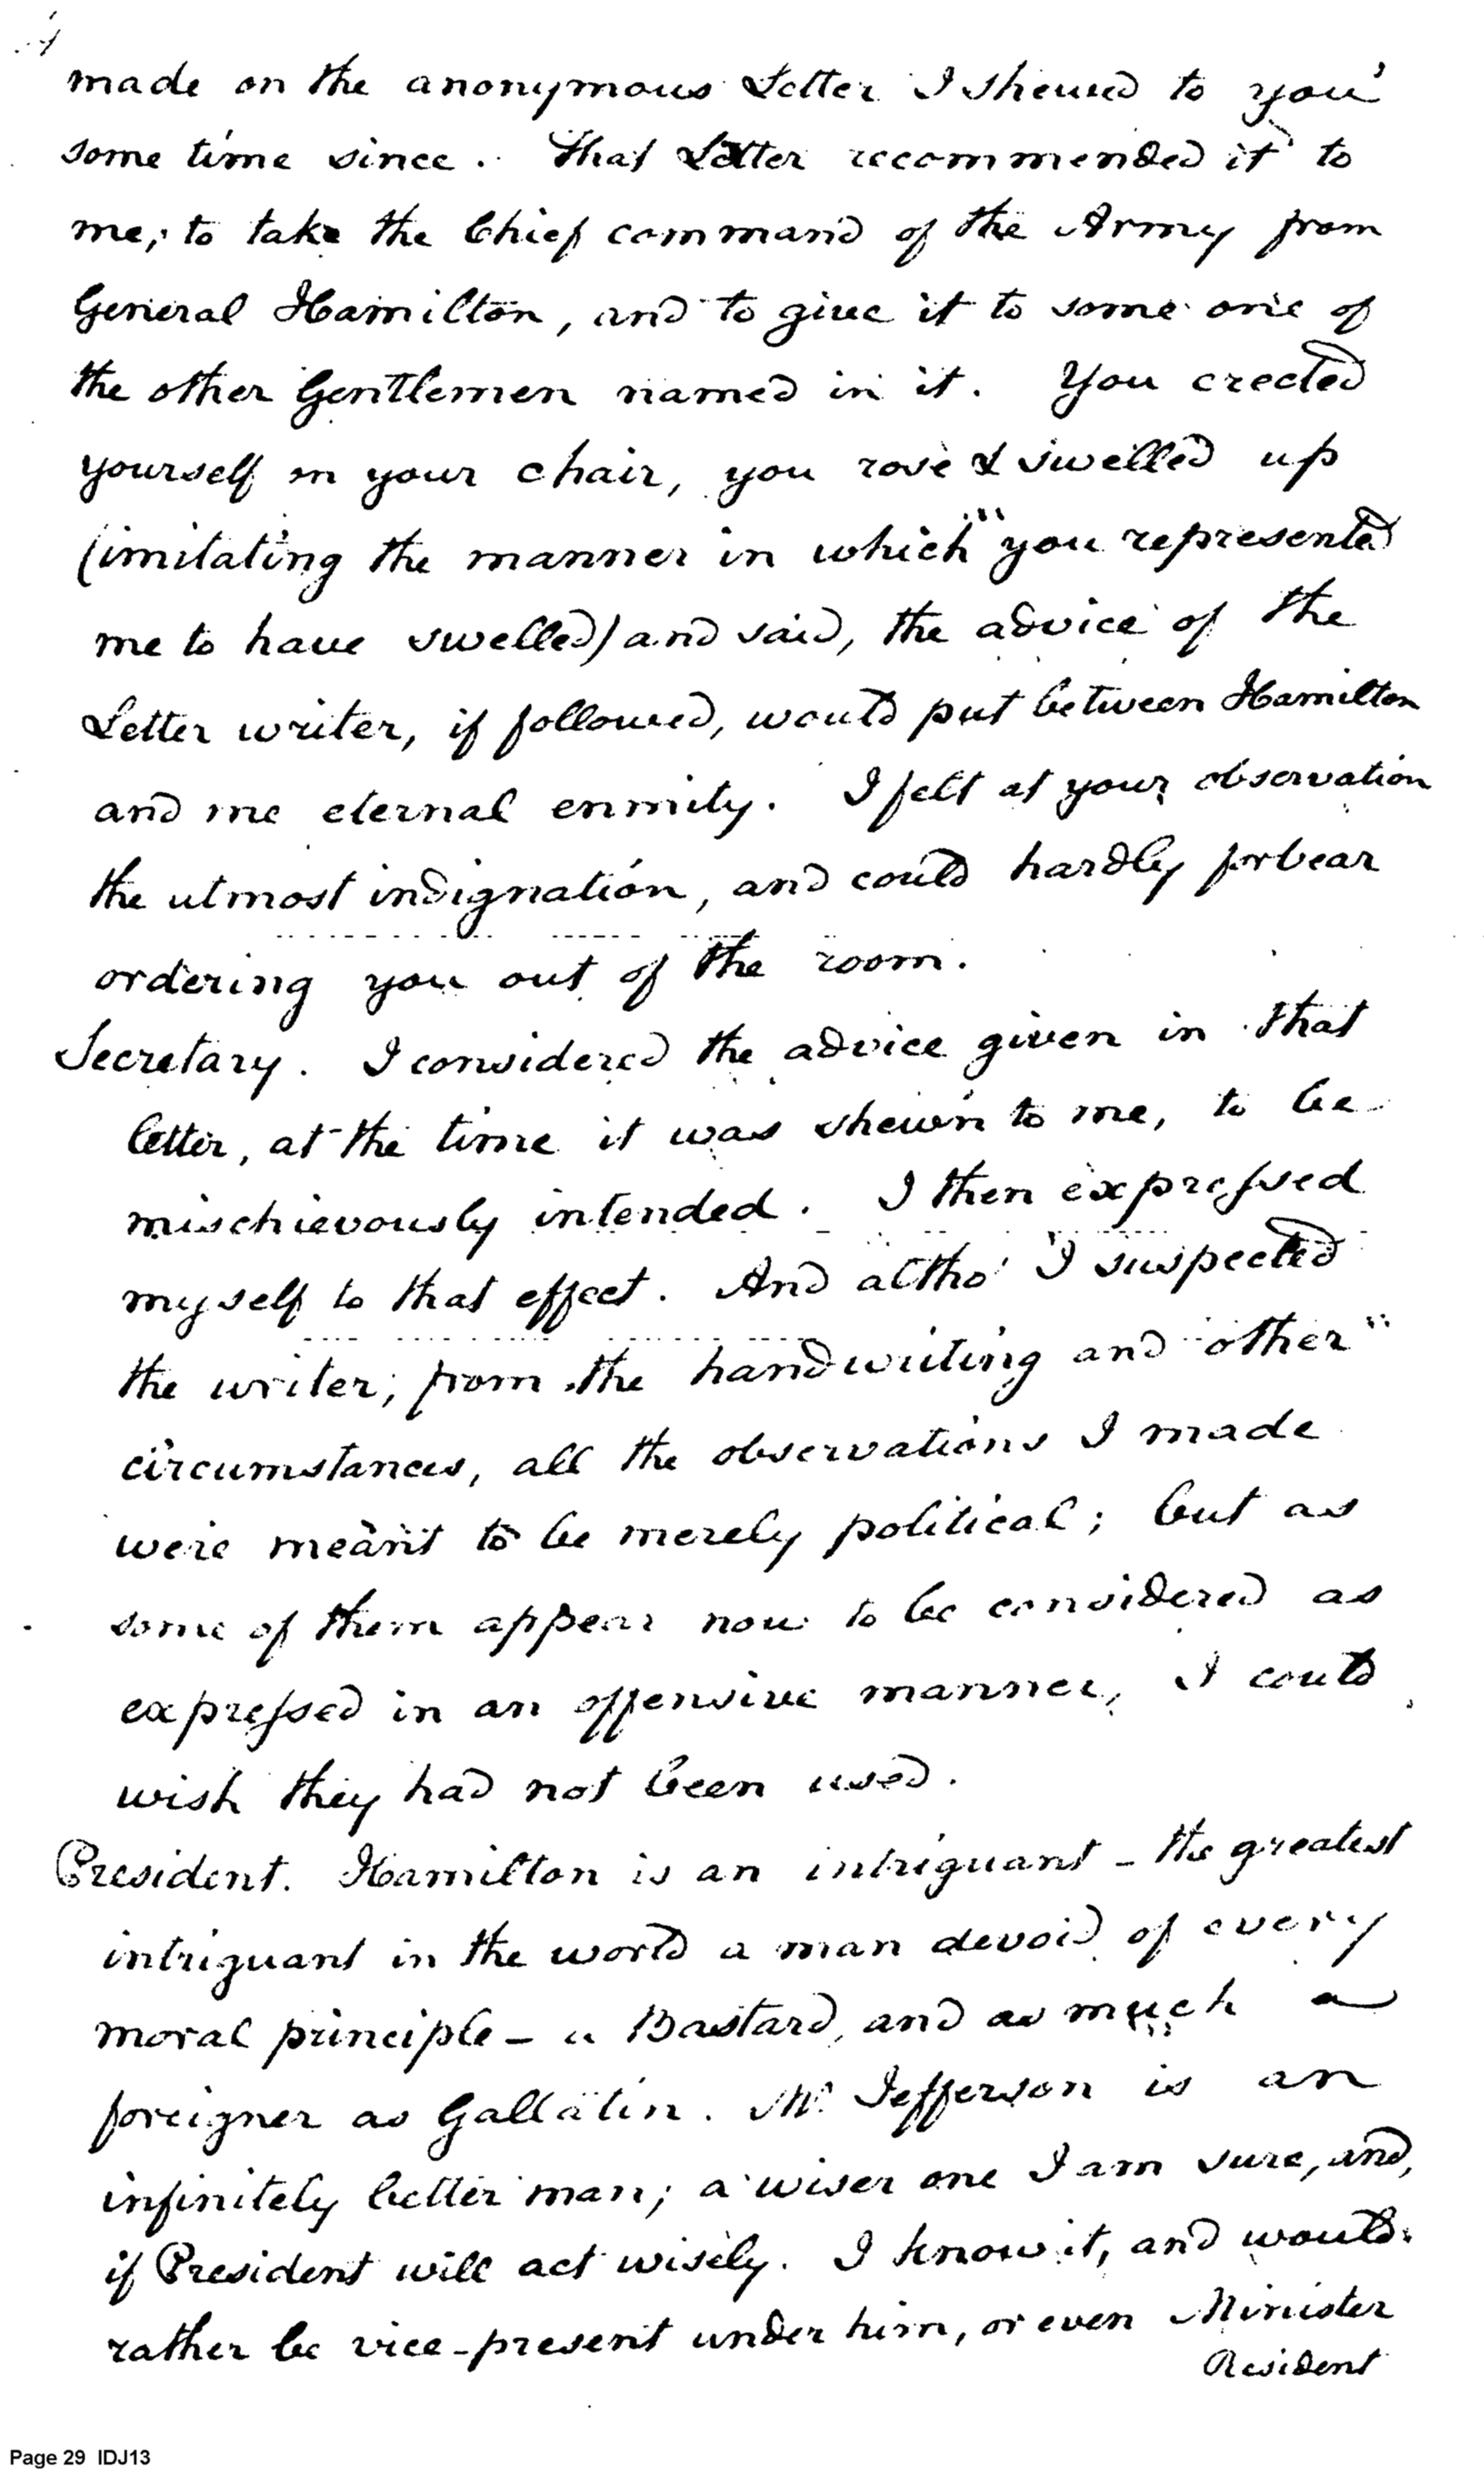 made on the anonymous Letter I shewed to you
some time since. That Letter recommended it to
me, to take the Chief command of the Army from
General Hamilton, and to give it to some one of
the other Gentlemen named in it. You erected
yourself in your chair, you rose & swelled up
(imitating the manner in which you represented
me to have swelled) and said, the advice of the
Letter writer, if followed, would put between Hamilton
and me eternal enmity. I felt at your observation
the utmost indignation, and could hardly forbear
ordering you out of the room.
Secretary. I considered the advice given in that
letter, at the time it was shewn to me, to be
mischievously intended. I then expressed
myself to that effect. And altho' I suspected
the writer, from the handwriting and other
circumstances, all the observations I made
were meant to be merely political; but as
some of them appear now to be considered as
expressed in an offensive manner, I could
wish they had not been used.
President. Hamilton is an intriguant - the greatest
intriguant in the world a man devoid of every
moral principle - a Bastard, and as much a
foreigner as Gallatin. Mr. Jefferson is an
infinitely better man; a wiser one I am sure, and,
if President will act wisely. I know it, and would
rather be vice-present under him, or even Minister
Resident
Page 29 IDJ13